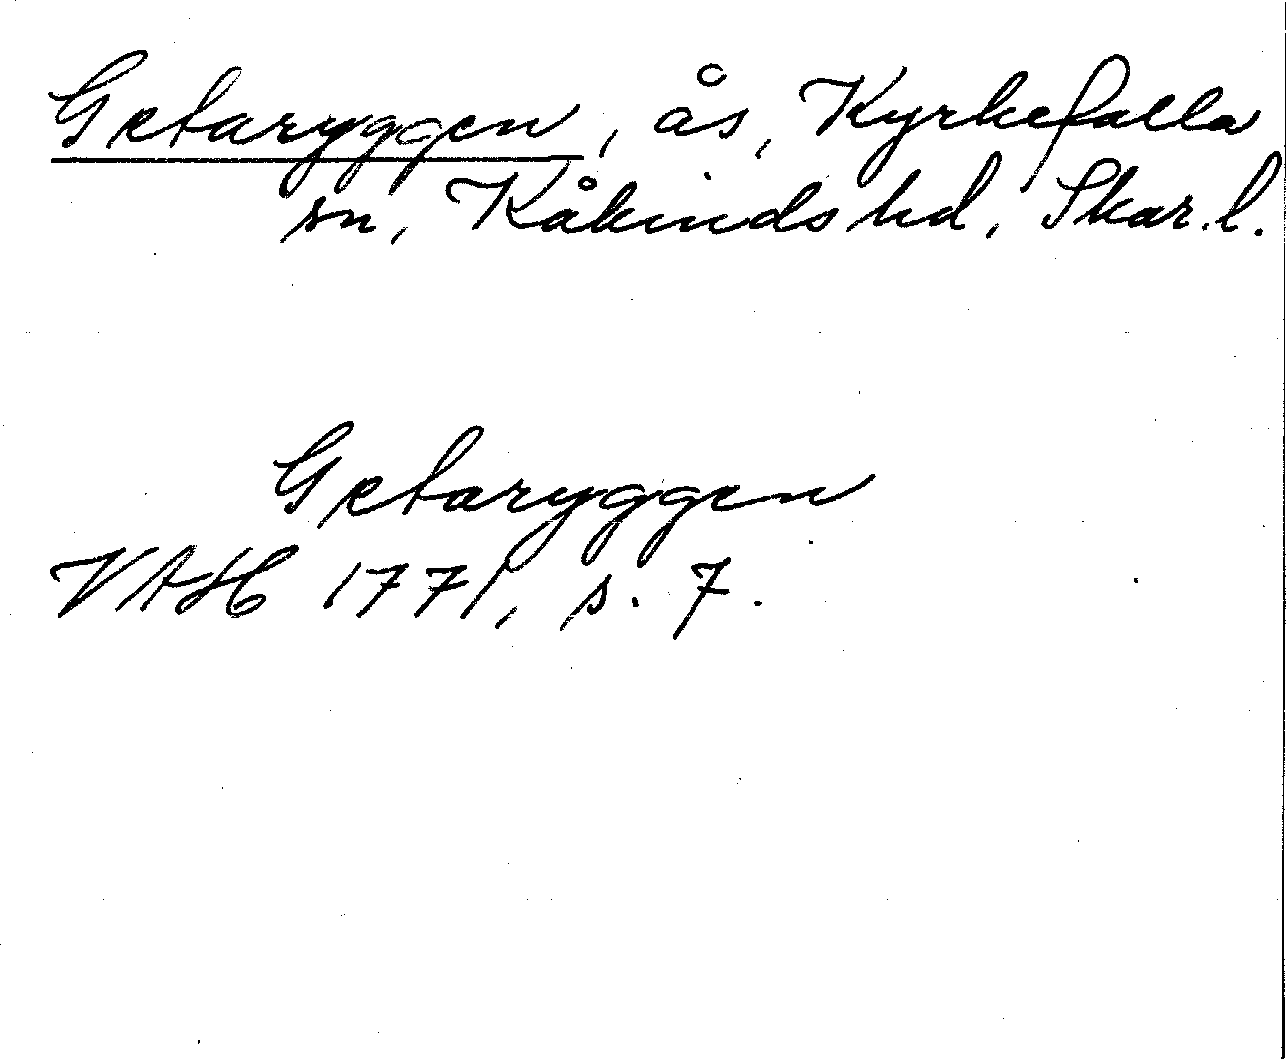 Getaryggen, ås, Kyrkefalla
sn, Kåkinds hd, Skar. l.
Getaryggen
VAH 1771, s. 7.